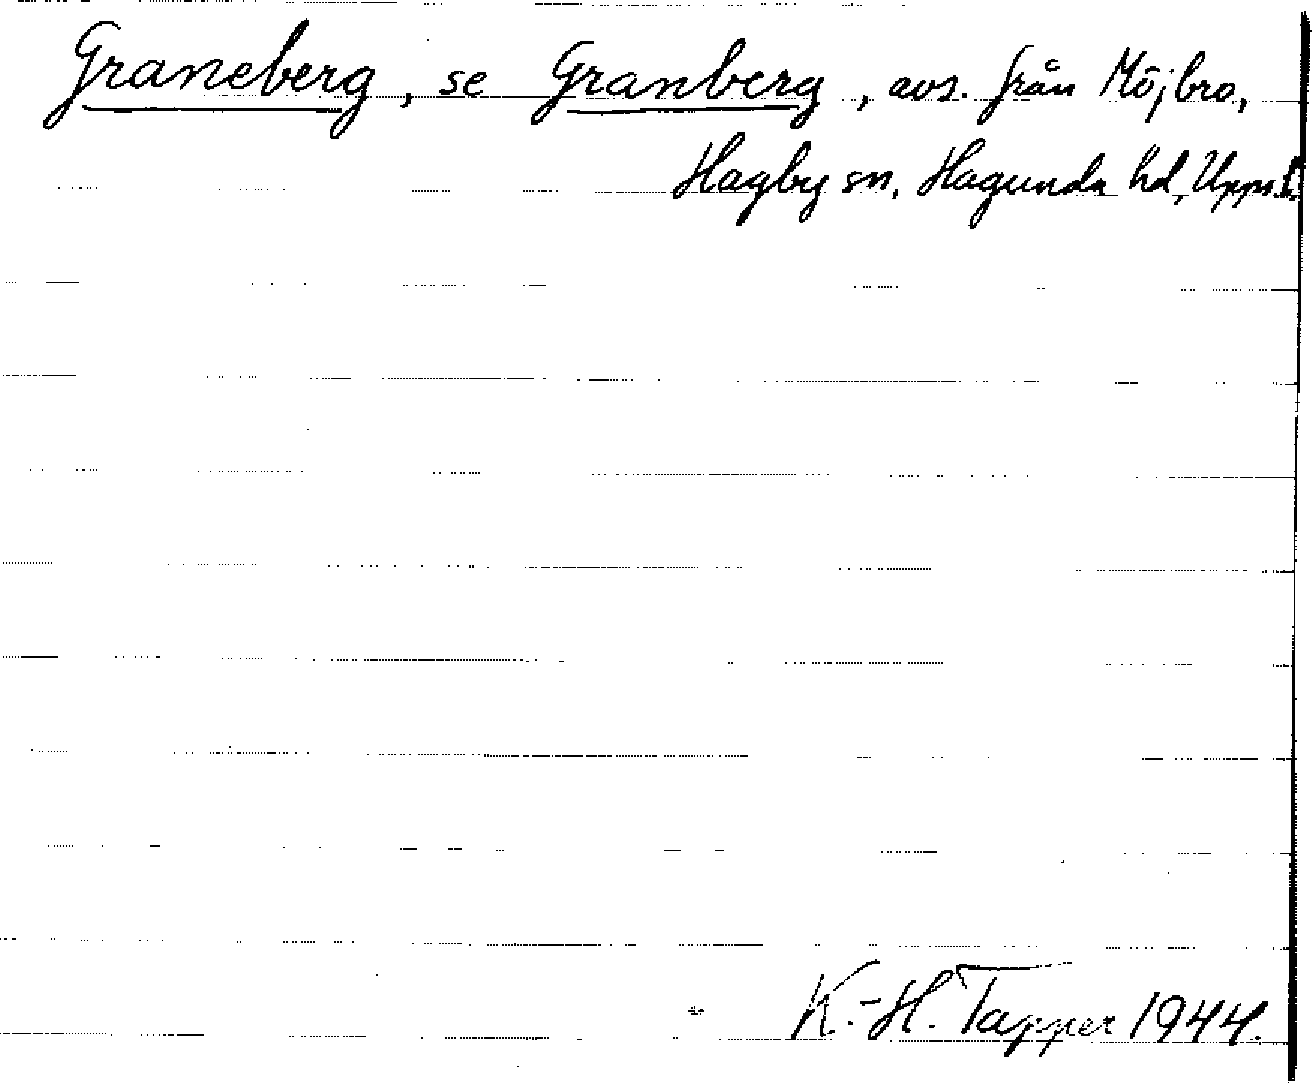 Graneberg, se Granberg, avs. från Möjbro,
Hagby sn, Hagunda hd, Upps.l.
K.-H. Tapper 1944.